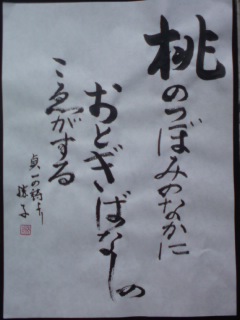 桃
のつぼみのなかに
おとぎばなしの
こゑがする
貞一の詩より